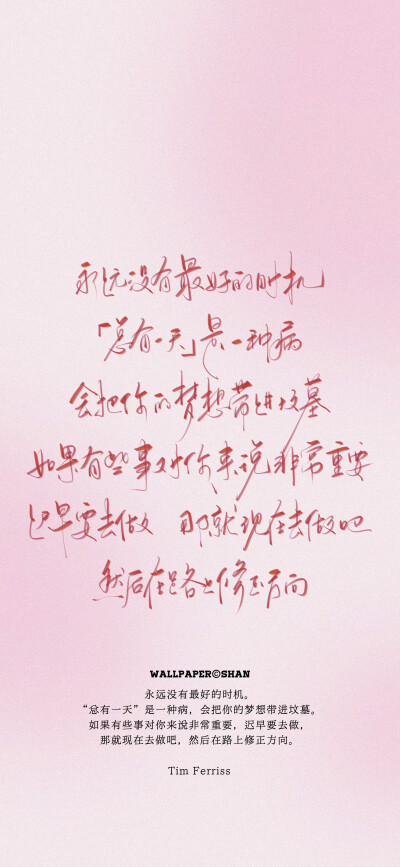 永远没有最好的时机
「总有一天」是一种病
会把你的梦想带进坟墓
如果有些事对你来说非常重要
迟早要去做 那就现在去做吧
然后在路上修正方向
WALLPAPER©SHAN
永远没有最好的时机。
“总有一天”是一种病，会把你的梦想带进坟墓。
如果有些事对你来说非常重要，迟早要去做，
那就现在去做吧，然后在路上修正方向。
Tim Ferriss